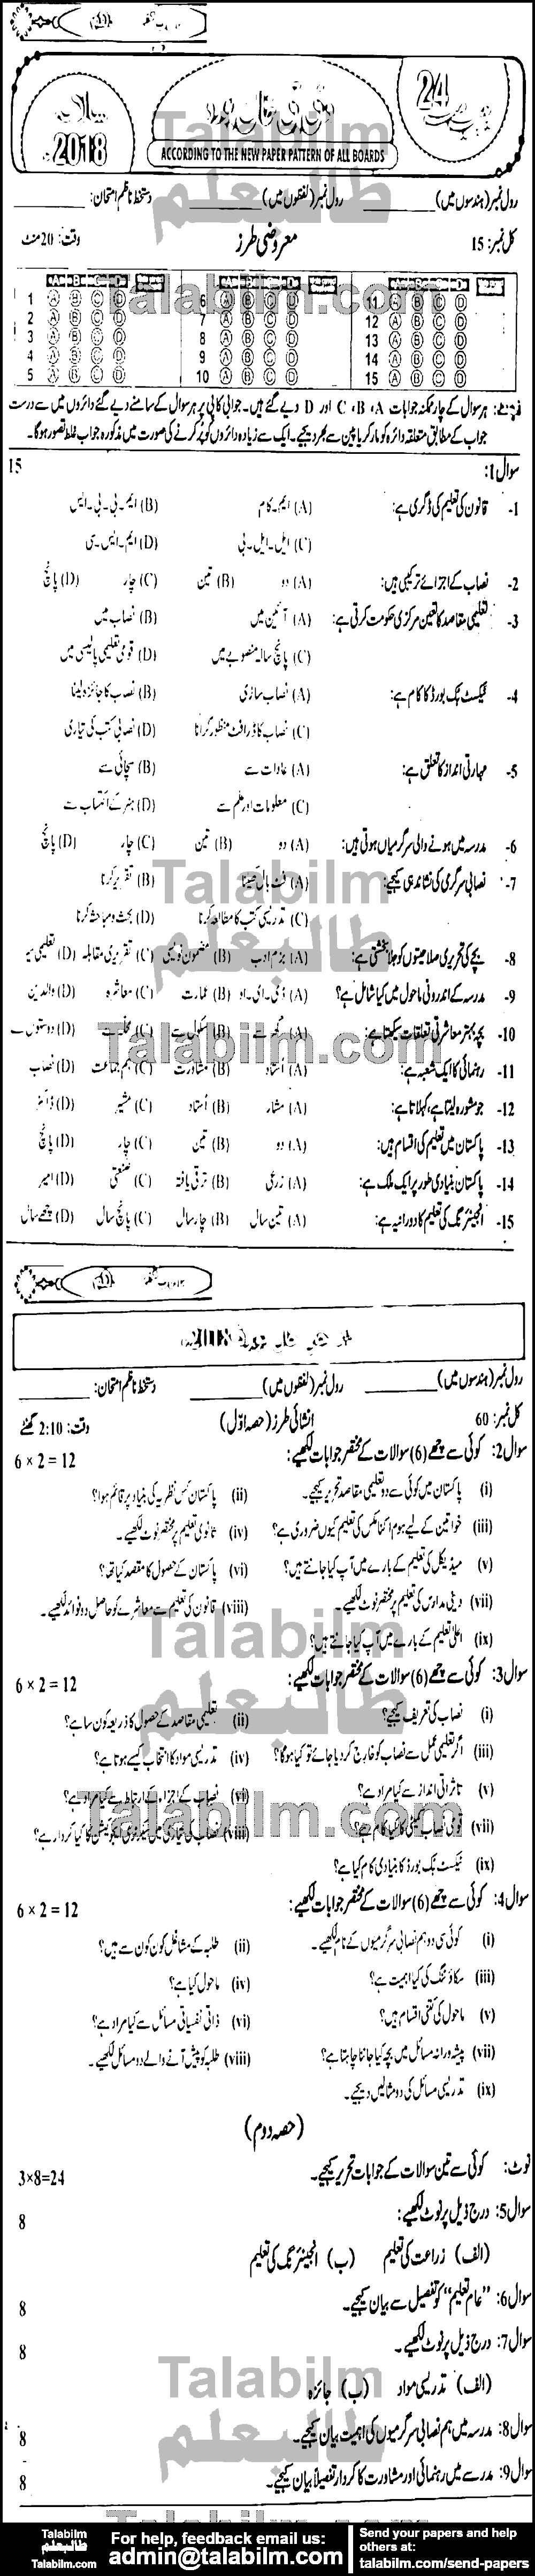 24
2018
ACCORDING TO THE NEW PAPER PATTERN OF ALL BOARDS
Talabilm
طالبعلم
رول نمبر (ہندسوں میں) رول نمبر (لفظوں میں) دستخط ناظم امتحان:
کل نمبر: 15 معروضی طرز وقت: 20 منٹ
1 A B C D 6 A B C D 11 A B C D
2 A B C D 7 A B C D 12 A B C D
3 A B C D 8 A B C D 13 A B C D
4 A B C D 9 A B C D 14 A B C D
5 A B C D 10 A B C D 15 A B C D
Talabilm.com
نوٹ: ہر سوال کے چار ممکنہ جوابات A، B، C اور D دیے گئے ہیں۔ جوابی کاپی پر ہر سوال کے سامنے دیے گئے دائروں میں سے درست
جواب کے مطابق متعلقہ دائرہ کو مارکر یا پین سے بھر دیجیے۔ ایک سے زیادہ دائروں کو پُر کرنے کی صورت میں مذکورہ جواب غلط تصور ہو گا۔
سوال 1: 15
1- قانون کی تعلیم کی ڈگری ہے: (A) ایم۔کام (B) ایم۔بی۔بی۔ایس
(C) ایل۔ایل۔بی (D) ایم۔ایس۔سی
2- نصاب کے اجزائے ترکیبی ہیں: (A) دو (B) تین (C) چار (D) پانچ
3- تعلیمی مقاصد کا تعین مرکزی حکومت کرتی ہے: (A) آئین میں (B) نصاب میں
(C) پانچ سالہ منصوبے میں (D) قومی تعلیمی پالیسی میں
4- ٹیکسٹ بک بورڈ کا کام ہے: (A) نصاب سازی (B) نصاب کا جائزہ لینا
(C) نصاب کا ڈرافٹ منظور کرانا (D) نصابی کتب کی تیاری
5- مہارتی انداز کا تعلق ہے: (A) عادات سے (B) سچائی سے
(C) معلومات اور علم سے (D) ہنر کے اکتساب سے
6- مدرسہ میں ہونے والی سرگرمیاں ہوتی ہیں: (A) دو (B) تین (C) چار (D) پانچ
Talabilm
طالبعلم
7- نصابی سرگرمی کی نشاندہی کیجیے: (A) فٹ بال کھیلنا (B) تقریر کرنا
(C) تدریسی کتب کا مطالعہ کرنا (D) بحث و مباحثہ کرنا
8- بچے کی تحریری صلاحیتوں کو جلا بخشتی ہے: (A) بزم ادب (B) مضمون نویسی (C) تقریری مقابلہ (D) تعلیمی سیر
9- مدرسہ کے اندرونی ماحول میں کیا شامل ہے؟ (A) ڈی۔ای۔او (B) عمارت (C) معاشرہ (D) والدین
10- بچہ بہتر معاشرتی تعلقات سیکھتا ہے: (A) گھر سے (B) سکول سے (C) محلے سے (D) دوستوں سے
Talabilm.com
11- رہنمائی کا ایک شعبہ ہے: (A) اُستاد (B) مشاورت (C) ہم جماعت (D) نصاب
12- جو مشورہ لیتا ہے، کہلاتا ہے: (A) مشار (B) اُستاد (C) مشیر (D) ڈاکٹر
13- پاکستان میں تعلیم کی اقسام ہیں: (A) دو (B) تین (C) چار (D) پانچ
14- پاکستان بنیادی طور پر ایک ملک ہے: (A) زرعی (B) ترقی یافتہ (C) صنعتی (D) امیر
15- انجینئرنگ کی تعلیم کا دورانیہ ہے: (A) تین سال (B) چار سال (C) پانچ سال (D) چھے سال
2018
رول نمبر (ہندسوں میں) رول نمبر (لفظوں میں) دستخط ناظم امتحان:
کل نمبر: 60 انشائی طرز (حصہ اوّل) وقت: 2:10 گھنٹے
سوال 2: کوئی سے چھے (6) سوالات کے مختصر جوابات لکھیے: 6 × 2 = 12
(i) پاکستان میں کوئی سے دو تعلیمی مقاصد تحریر کیجیے۔ (ii) پاکستان کس نظریہ کی بنیاد پر قائم ہوا؟
(iii) خواتین کے لیے ہوم اکنامکس کی تعلیم کیوں ضروری ہے؟ (iv) ثانوی تعلیم پر مختصر نوٹ لکھیے۔
(v) میڈیکل کی تعلیم کے بارے میں آپ کیا جانتے ہیں؟ (vi) پاکستان کے حصول کا مقصد کیا تھا؟
(vii) دینی مدارس کی تعلیم پر مختصر نوٹ لکھیے۔ (viii) قانون کی تعلیم سے معاشرے کو حاصل دو فوائد لکھیے۔
(ix) اعلیٰ تعلیم کے بارے میں آپ کیا جانتے ہیں؟
Talabilm
طالبعلم
سوال 3: کوئی سے چھے (6) سوالات کے مختصر جوابات لکھیے: 6 × 2 = 12
(i) نصاب کی تعریف کیجیے؟ (ii) تعلیمی مقاصد کے حصول کا ذریعہ کون سا ہے؟
(iii) اگر تعلیمی عمل سے نصاب کو خارج کر دیا جائے تو کیا ہو گا؟ (iv) تدریسی مواد کا انتخاب کیسے ہوتا ہے؟
(v) تاثراتی انداز سے کیا مراد ہے؟ (vi) نصاب کے اجزاء کے ارتباط سے کیا مراد ہے؟
Talabilm.com
(vii) قومی نصاب کمیٹی کا کیا کام ہے؟ (viii) نصاب کی تیاری میں بیورو آف ایجوکیشن کا کیا کردار ہے؟
(ix) ٹیکسٹ بک بورڈ کا بنیادی کام کیا ہے؟
سوال 4: کوئی سے چھے (6) سوالات کے مختصر جوابات لکھیے: 6 × 2 = 12
(i) کوئی سی دو ہم نصابی سرگرمیوں کے نام لکھیے۔ (ii) طلبہ کے مشاغل کون کون سے ہیں؟
(iii) سکاؤٹنگ کی کیا اہمیت ہے؟ (iv) ماحول کیا ہے؟
(v) ماحول کی کتنی اقسام ہیں؟ (vi) ذاتی نفسیاتی مسائل سے کیا مراد ہے؟
(vii) پیشہ ورانہ مسائل میں بچہ کیا جاننا چاہتا ہے؟ (viii) طلبہ کو پیش آنے والے دو مسائل لکھیے۔
(ix) تدریسی مسائل کی دو مثالیں دیجیے۔
(حصہ دوم)
نوٹ: کوئی سے تین سوالات کے جوابات تحریر کیجیے۔ 3×8=24
سوال 5: درج ذیل پر نوٹ لکھیے: 8
(الف) زراعت کی تعلیم (ب) انجینئرنگ کی تعلیم
سوال 6: "عام تعلیم" کو تفصیل سے بیان کیجیے۔ 8
سوال 7: درج ذیل پر نوٹ لکھیے۔ 8
(الف) تدریسی مواد (ب) جائزہ
Talabilm
طالبعلم
سوال 8: مدرسہ میں ہم نصابی سرگرمیوں کی اہمیت بیان کیجیے۔ 8
سوال 9: مدرسے میں رہنمائی اور مشاورت کا کردار تفصیلاً بیان کیجیے۔ 8
Talabilm
طالبعلم
Talabilm.com
For help, feedback email us:
admin@talabilm.com
Send your papers and help
others at:
talabilm.com/send-papers